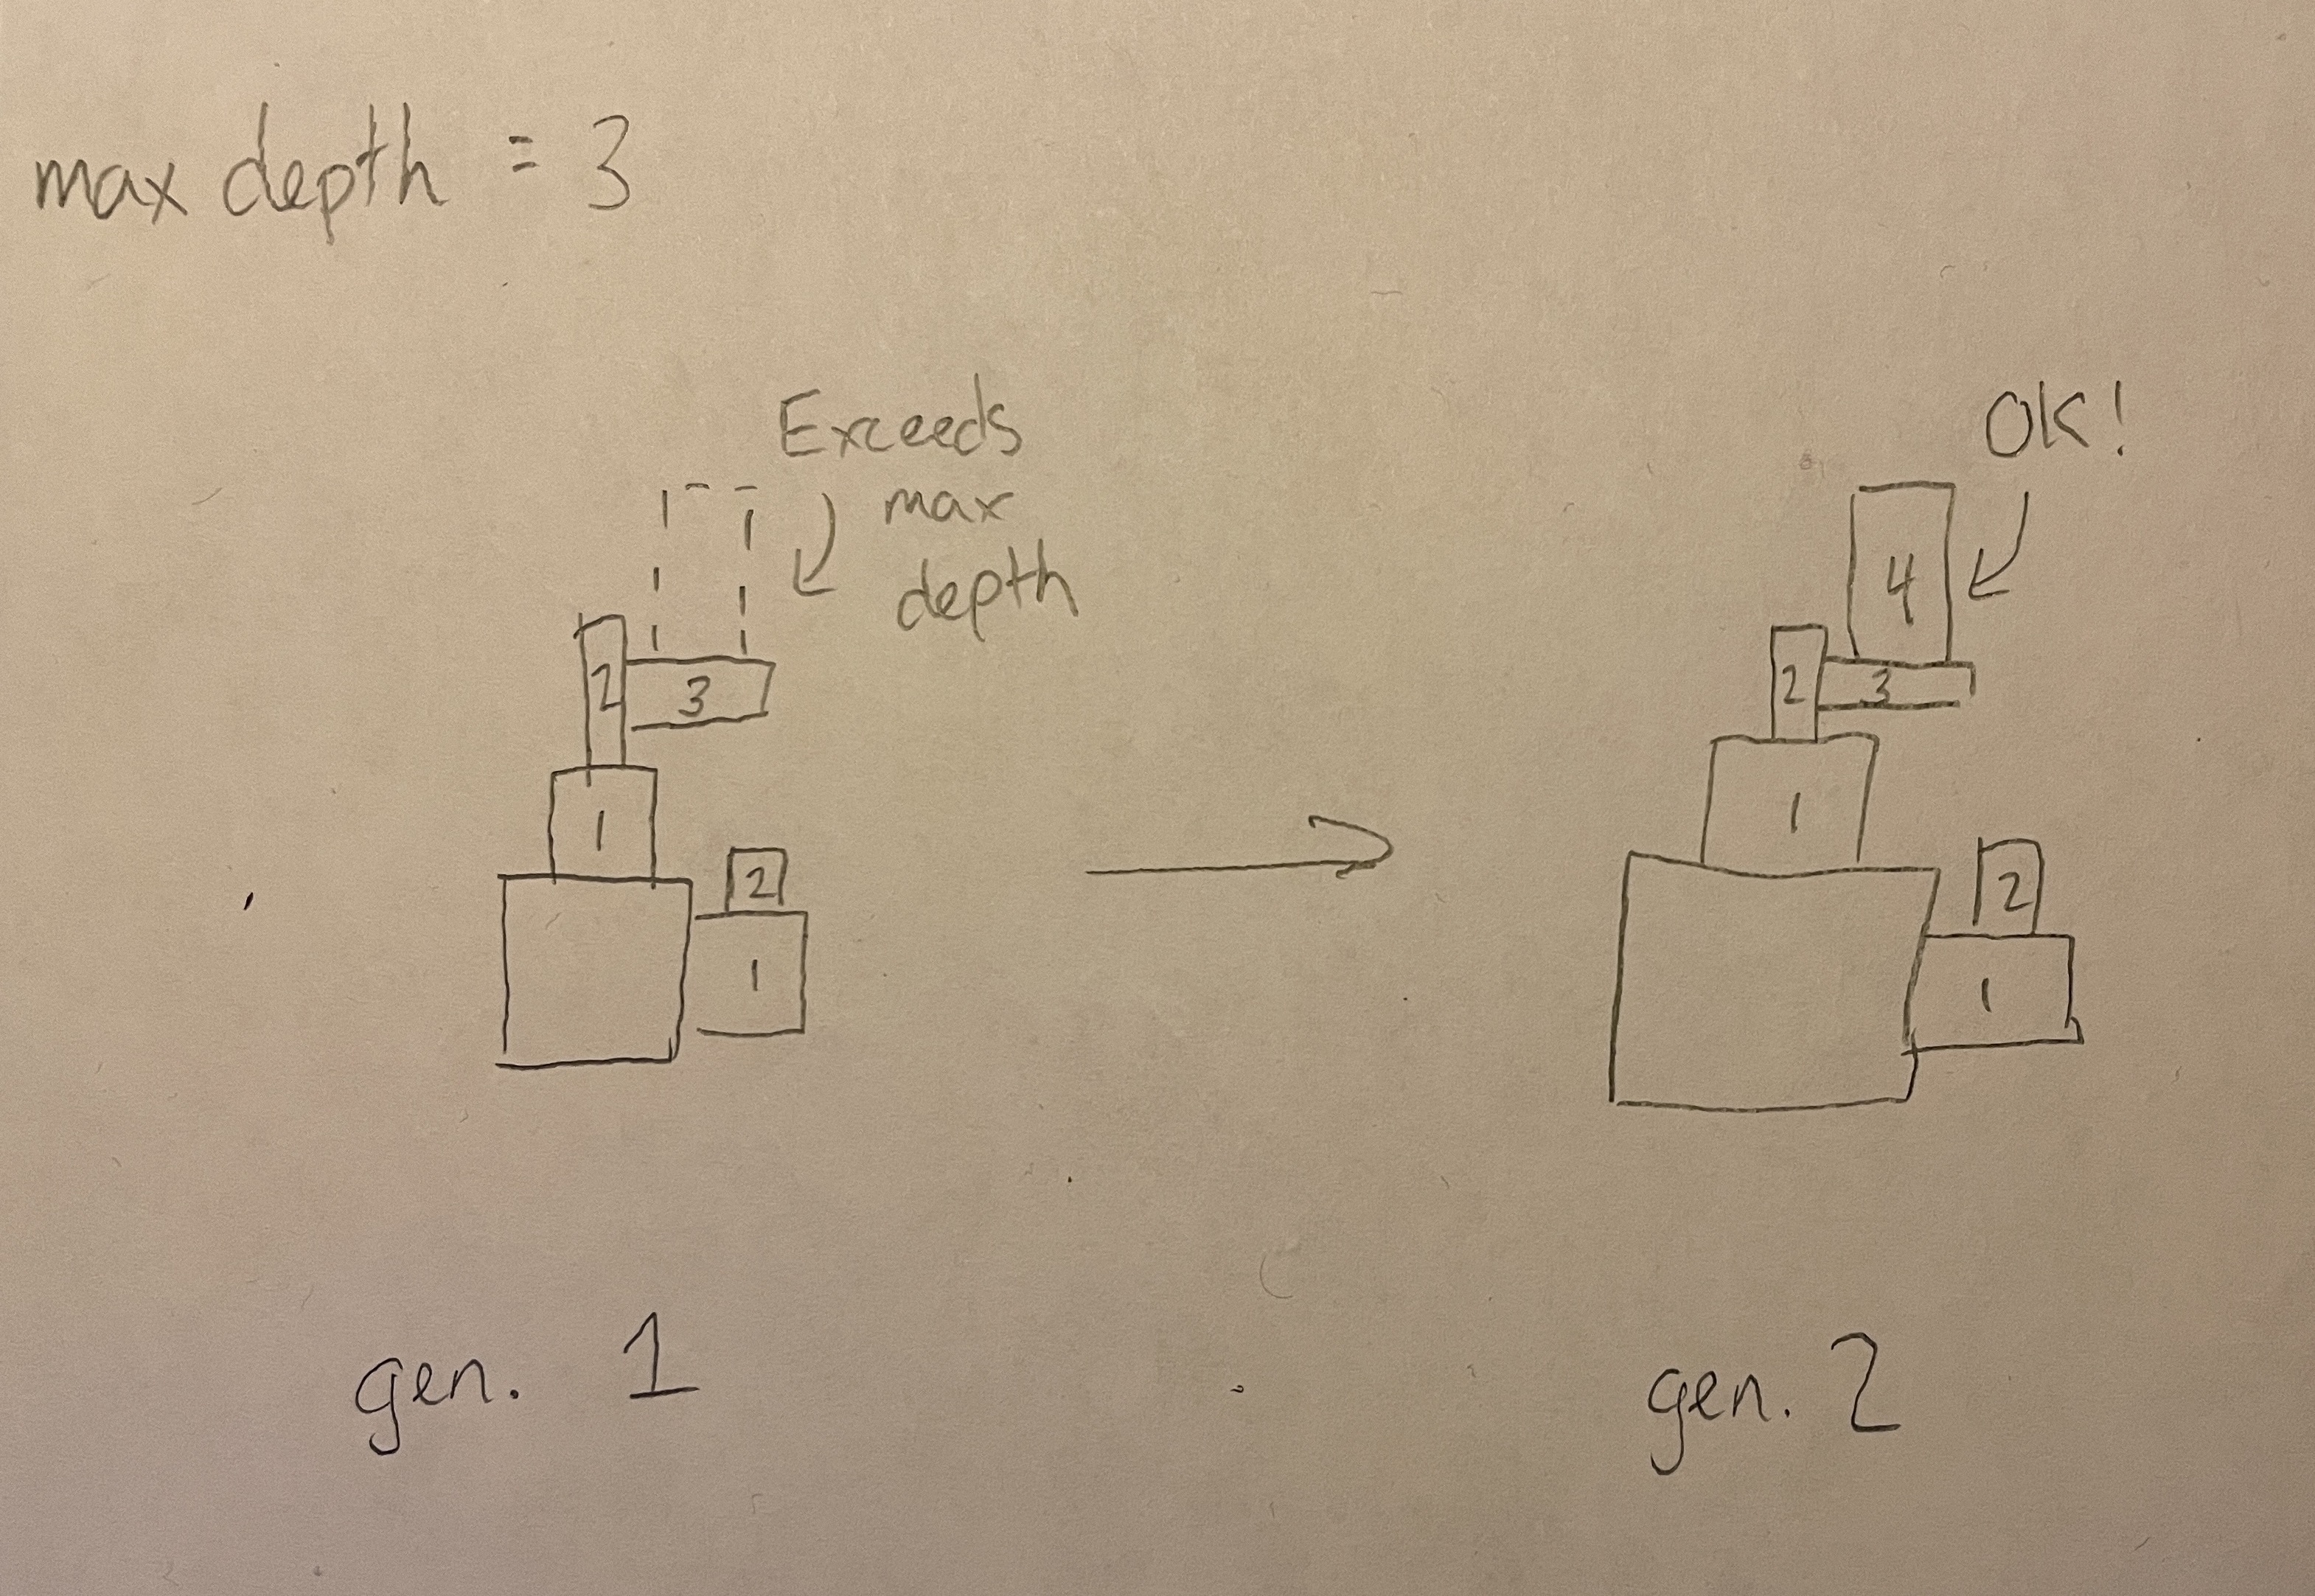 max depth = 3
Exceeds
max
depth
2
3
1
2
1
OK!
4
2
3
1
2
1
gen. 1
gen. 2